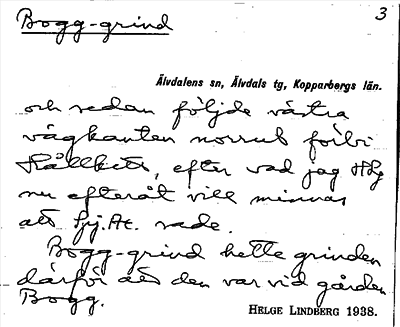 Bogg-grind
3
Älvdalens sn, Älvdals tg, Kopparbergs län.
och sedan följde västra
vägkanten norrut förbi
, efter vad jag HLg
nu efteråt vill minnas
att Lj. At. sade.
Bogg-grind hette grinden
därför att den var vid gården
Bogg.
HELGE LINDBERG 1938.